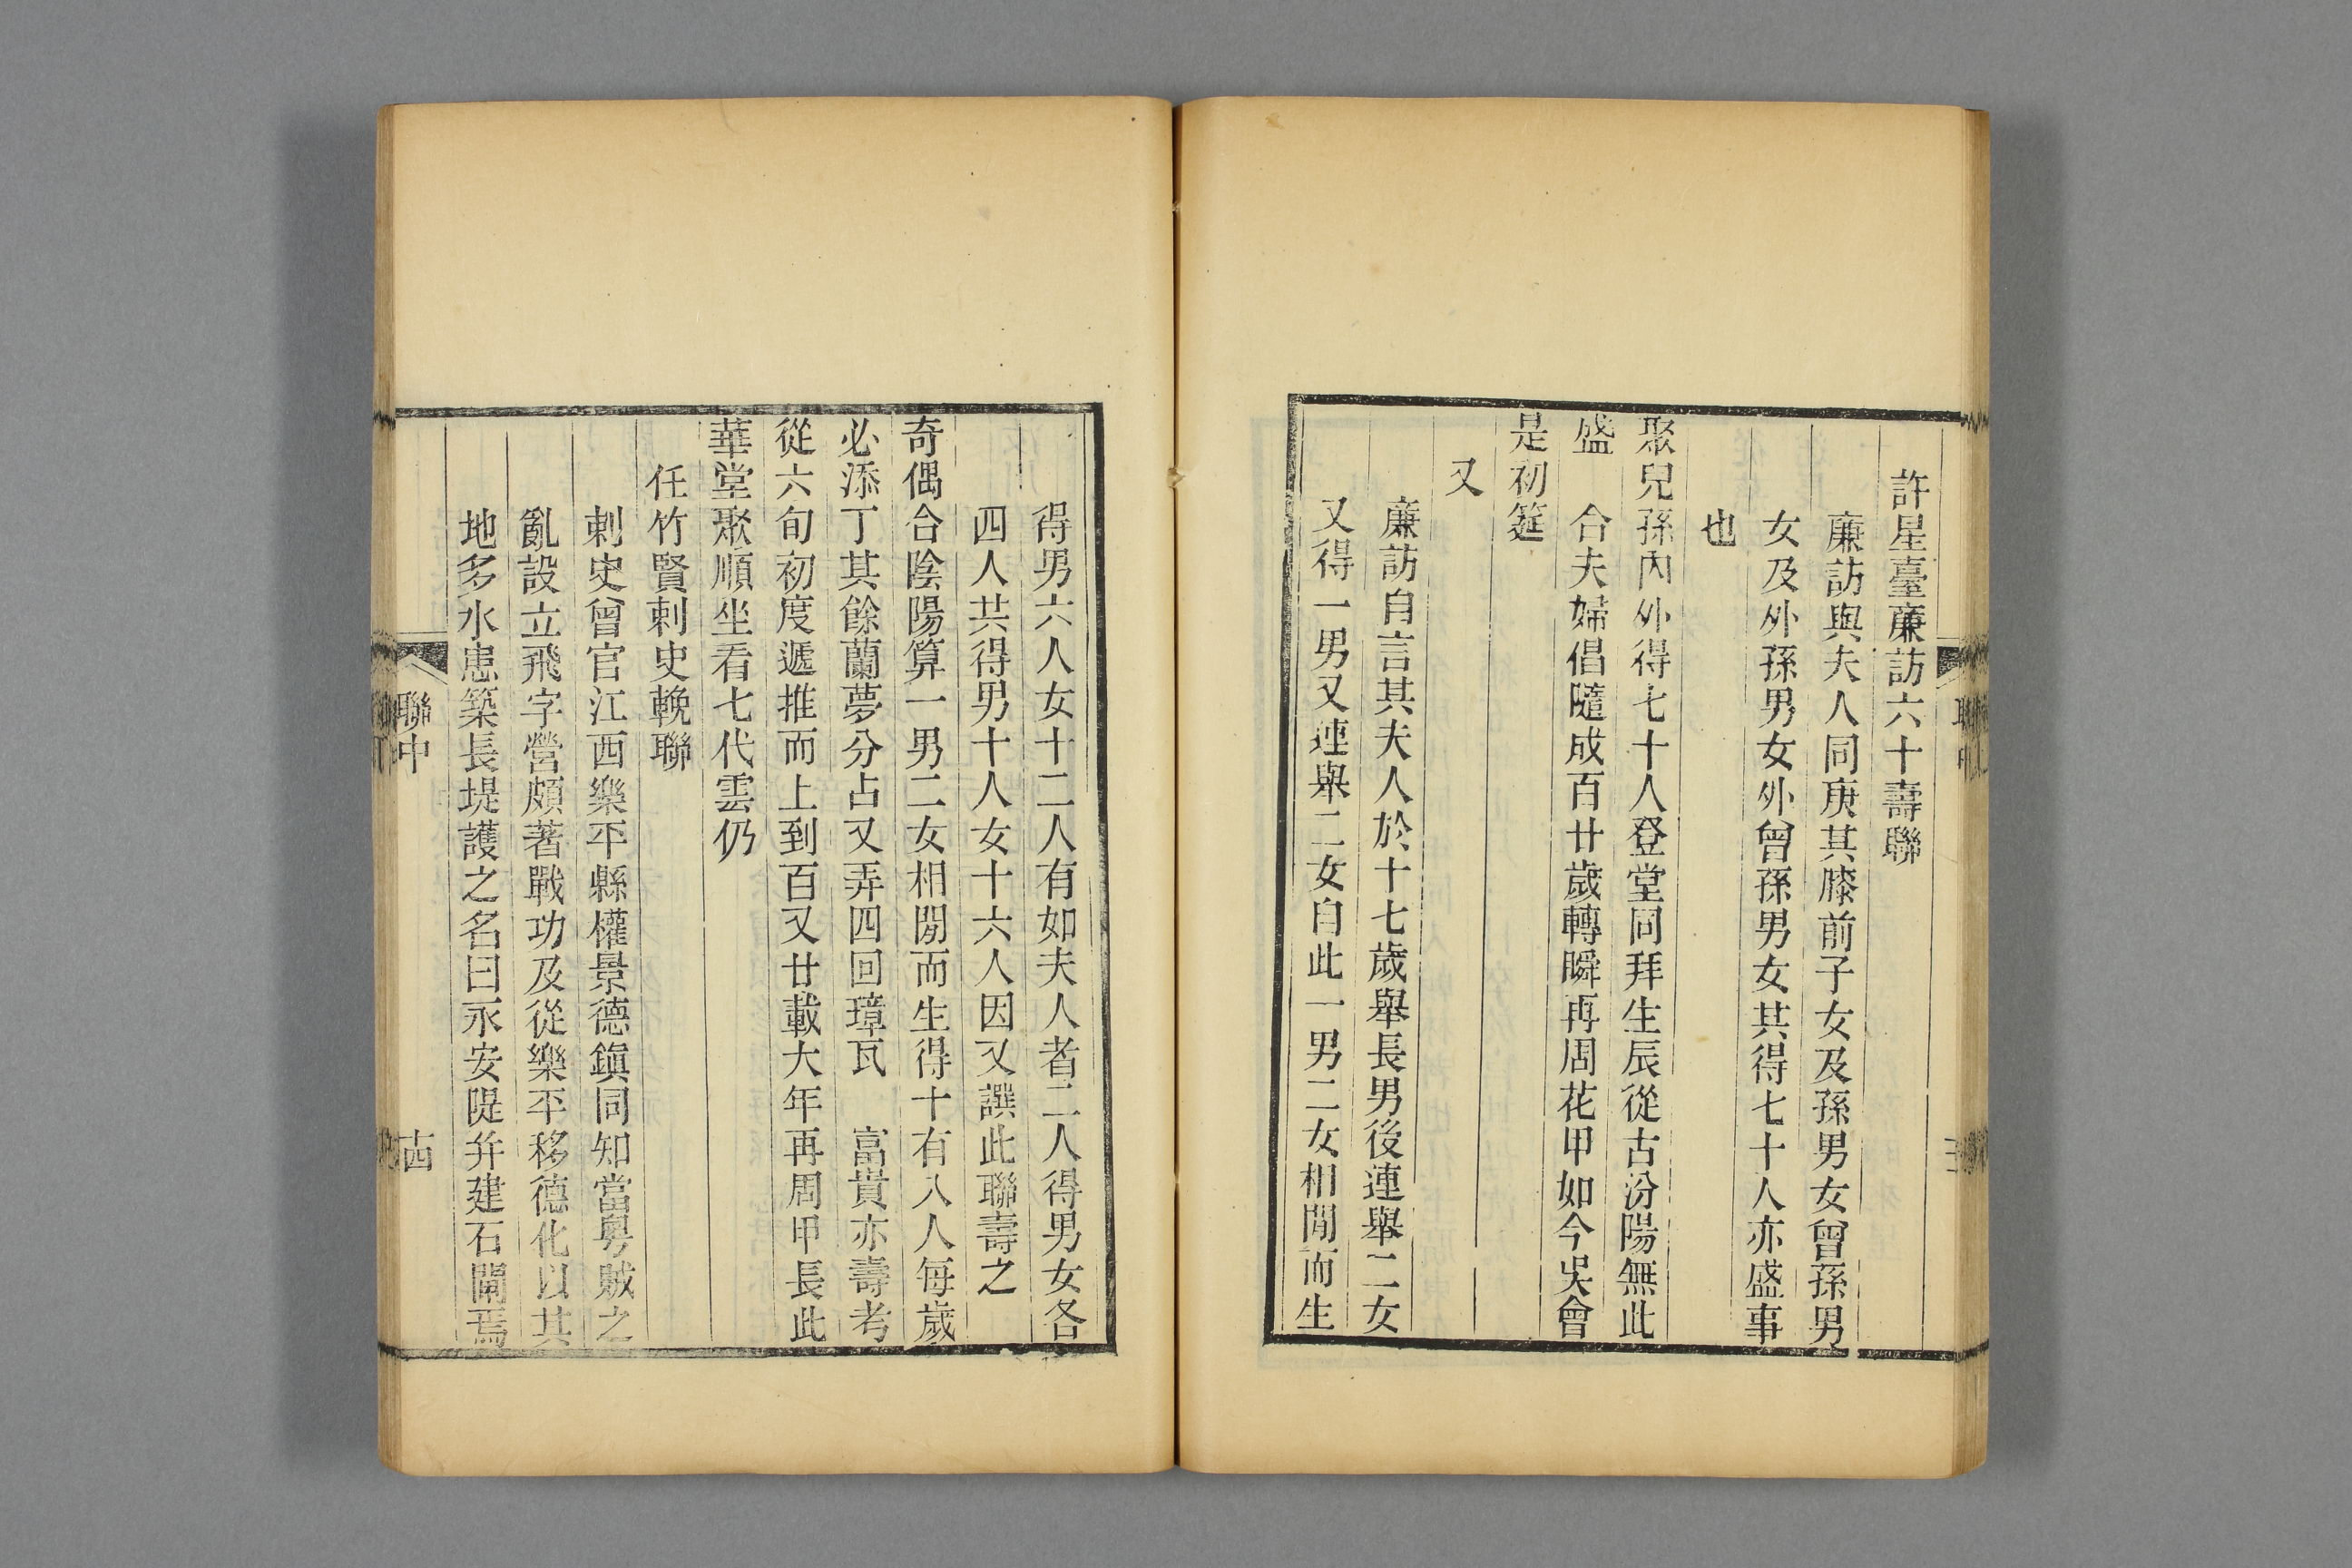 許星臺廉訪六十壽聯
廉訪與夫人同庚其膝前子女及孫男女曾孫男
女及外孫男女外曾孫男女其得七十人亦盛事
也
聚兒孫內外得七十人登堂同拜生辰從古汾陽無此
盛　合夫婦倡隨成百廿歲轉瞬再周花甲如今吳會
是初筵
又
廉訪自言其夫人於十七歲舉長男後連舉二女
又得一男又連舉二女自此一男二女相閒而生
得男六人女十二人有如夫人者二人得男女各
四人共得男十人女十六人因又譔此聯壽之
奇偶合陰陽算一男二女相閒而生得十有八人每歲
必添丁其餘蘭夢分占又弄四回璋瓦　富貴亦壽考
從六旬初度遞推而上到百又廿載大年再周甲長此
華堂聚順坐看七代雲仍
任竹賢刺史輓聯
刺史曾官江西樂平縣權景德鎮同知當粵賊之
亂設立飛字營頗著戰功及從樂平移德化以其
地多水患築長堤護之名曰永安隄并建石閘焉
聯中
十四